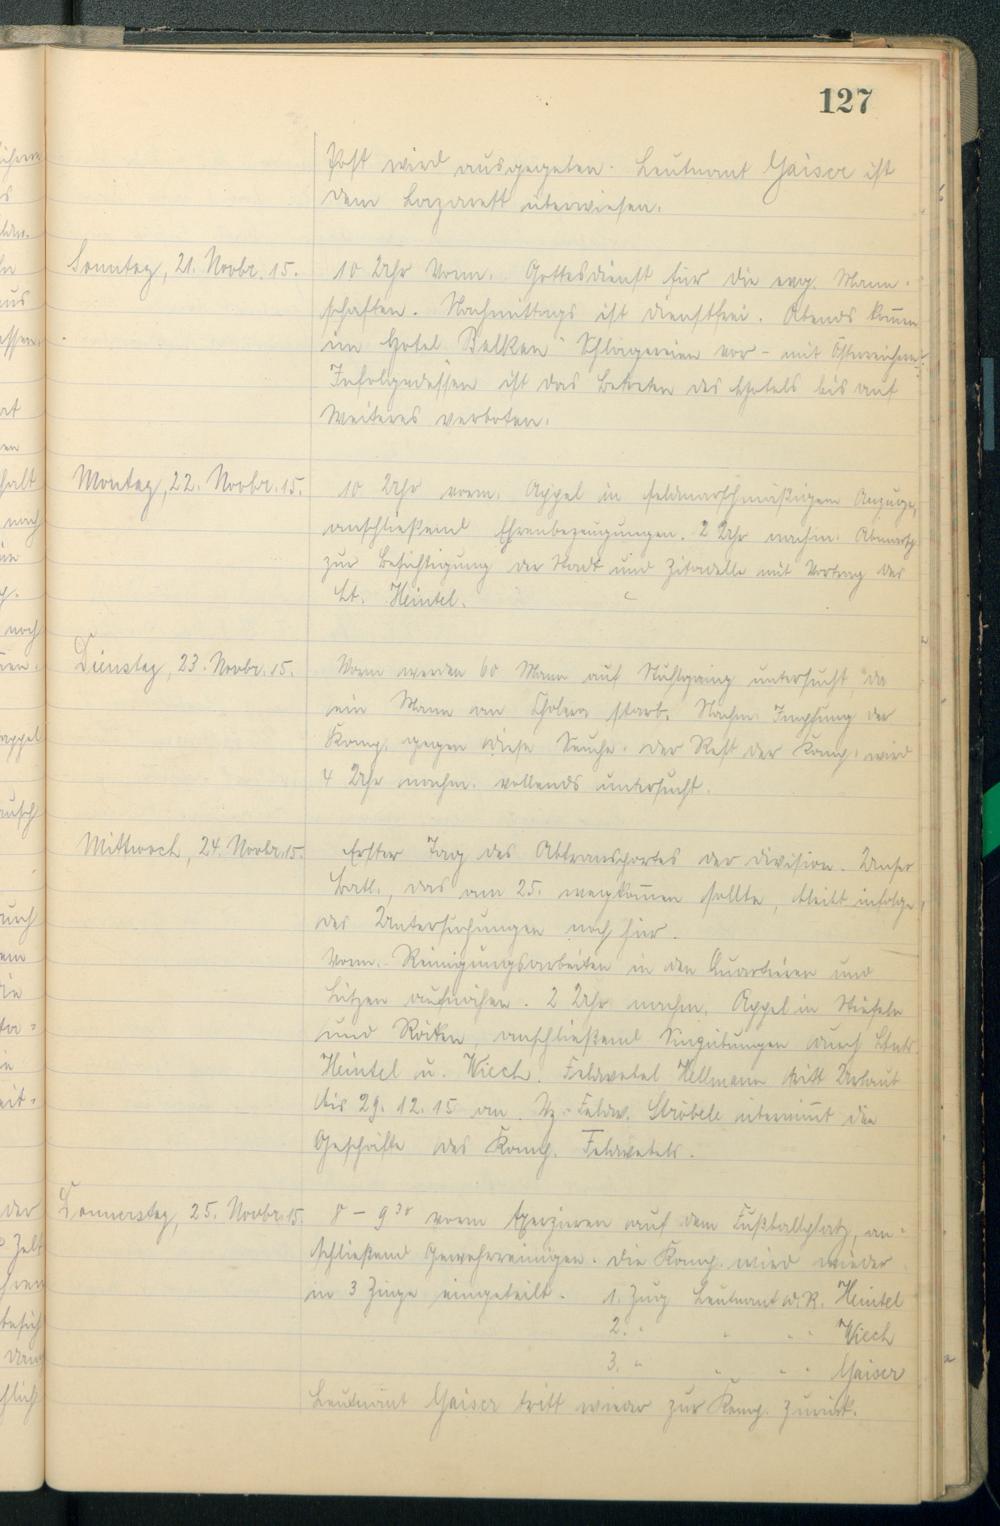 127
Post wird ausgegeben. Leutnant Gaiser ist
dem Lazarett überwiesen.
Sonntag, 21. Novbr. 15.
10 Uhr Vorm. Gottesdienst für die evg. Mann-
schaften. Nachmittags ist dienstfrei. Abends kom̄en
im Hotel "Balkan" Schlägereien vor - mit Österreichern.
Infolgedessen ist das Betreten des Hotels bis auf
Weiteres verboten.
Montag, 22. Novbr. 15.
10 Uhr vorm. Appel in feldmarschmäßigem Anzuge,
anschließend Ehrenbezeugungen. 2 Uhr nachm. Abmarsch
zur Besichtigung der Stadt und Zitadelle mit Vortrag des
Lt. Heintel.
Dienstag, 23. Novbr. 15.
Vorm werden 60 Mann auf Stuhlgang untersucht, da
ein Mann an Cholera starb. Nachm. Impfung der
Komp. gegen diese Seuche. Der Rest der Komp. wird
4 Uhr nachm. vollends untersucht.
Mittwoch, 24. Novbr. 15.
Erster Tag des Abtransportes der Division. Unser
Batl., das am 25. wegkom̄en sollte, bleibt infolge
des Untersuchungen noch hier.
Vorm. Reinigungsarbeiten in den Quartieren und
Litzen aufnähen. 2 Uhr nachm. Appel in Stiefeln
und Röcken, anschließend Singübungen durch Ltnts
Heintel u. Wiech. Feldwebel Hellmann tritt Urlaub
bis 29. 12. 15 an. Vz.-Feldw. Ströbele übernim̄t die
Geschäfte des Komp. Feldwebels.
Donnerstag, 25. Novbr. 15.
8 - 9³⁰ vorm Exerzieren auf dem Fußballplatz, an-
schließend Gewehrreinigen. Die Komp. wird wieder
in 3 Züge eingeteilt. 1. Zug Leutnant d. R. Heintel
2. " " " " Wiech
3. " " " " Gaiser
Leutnant Gaiser tritt wieder zur Komp. zurück.